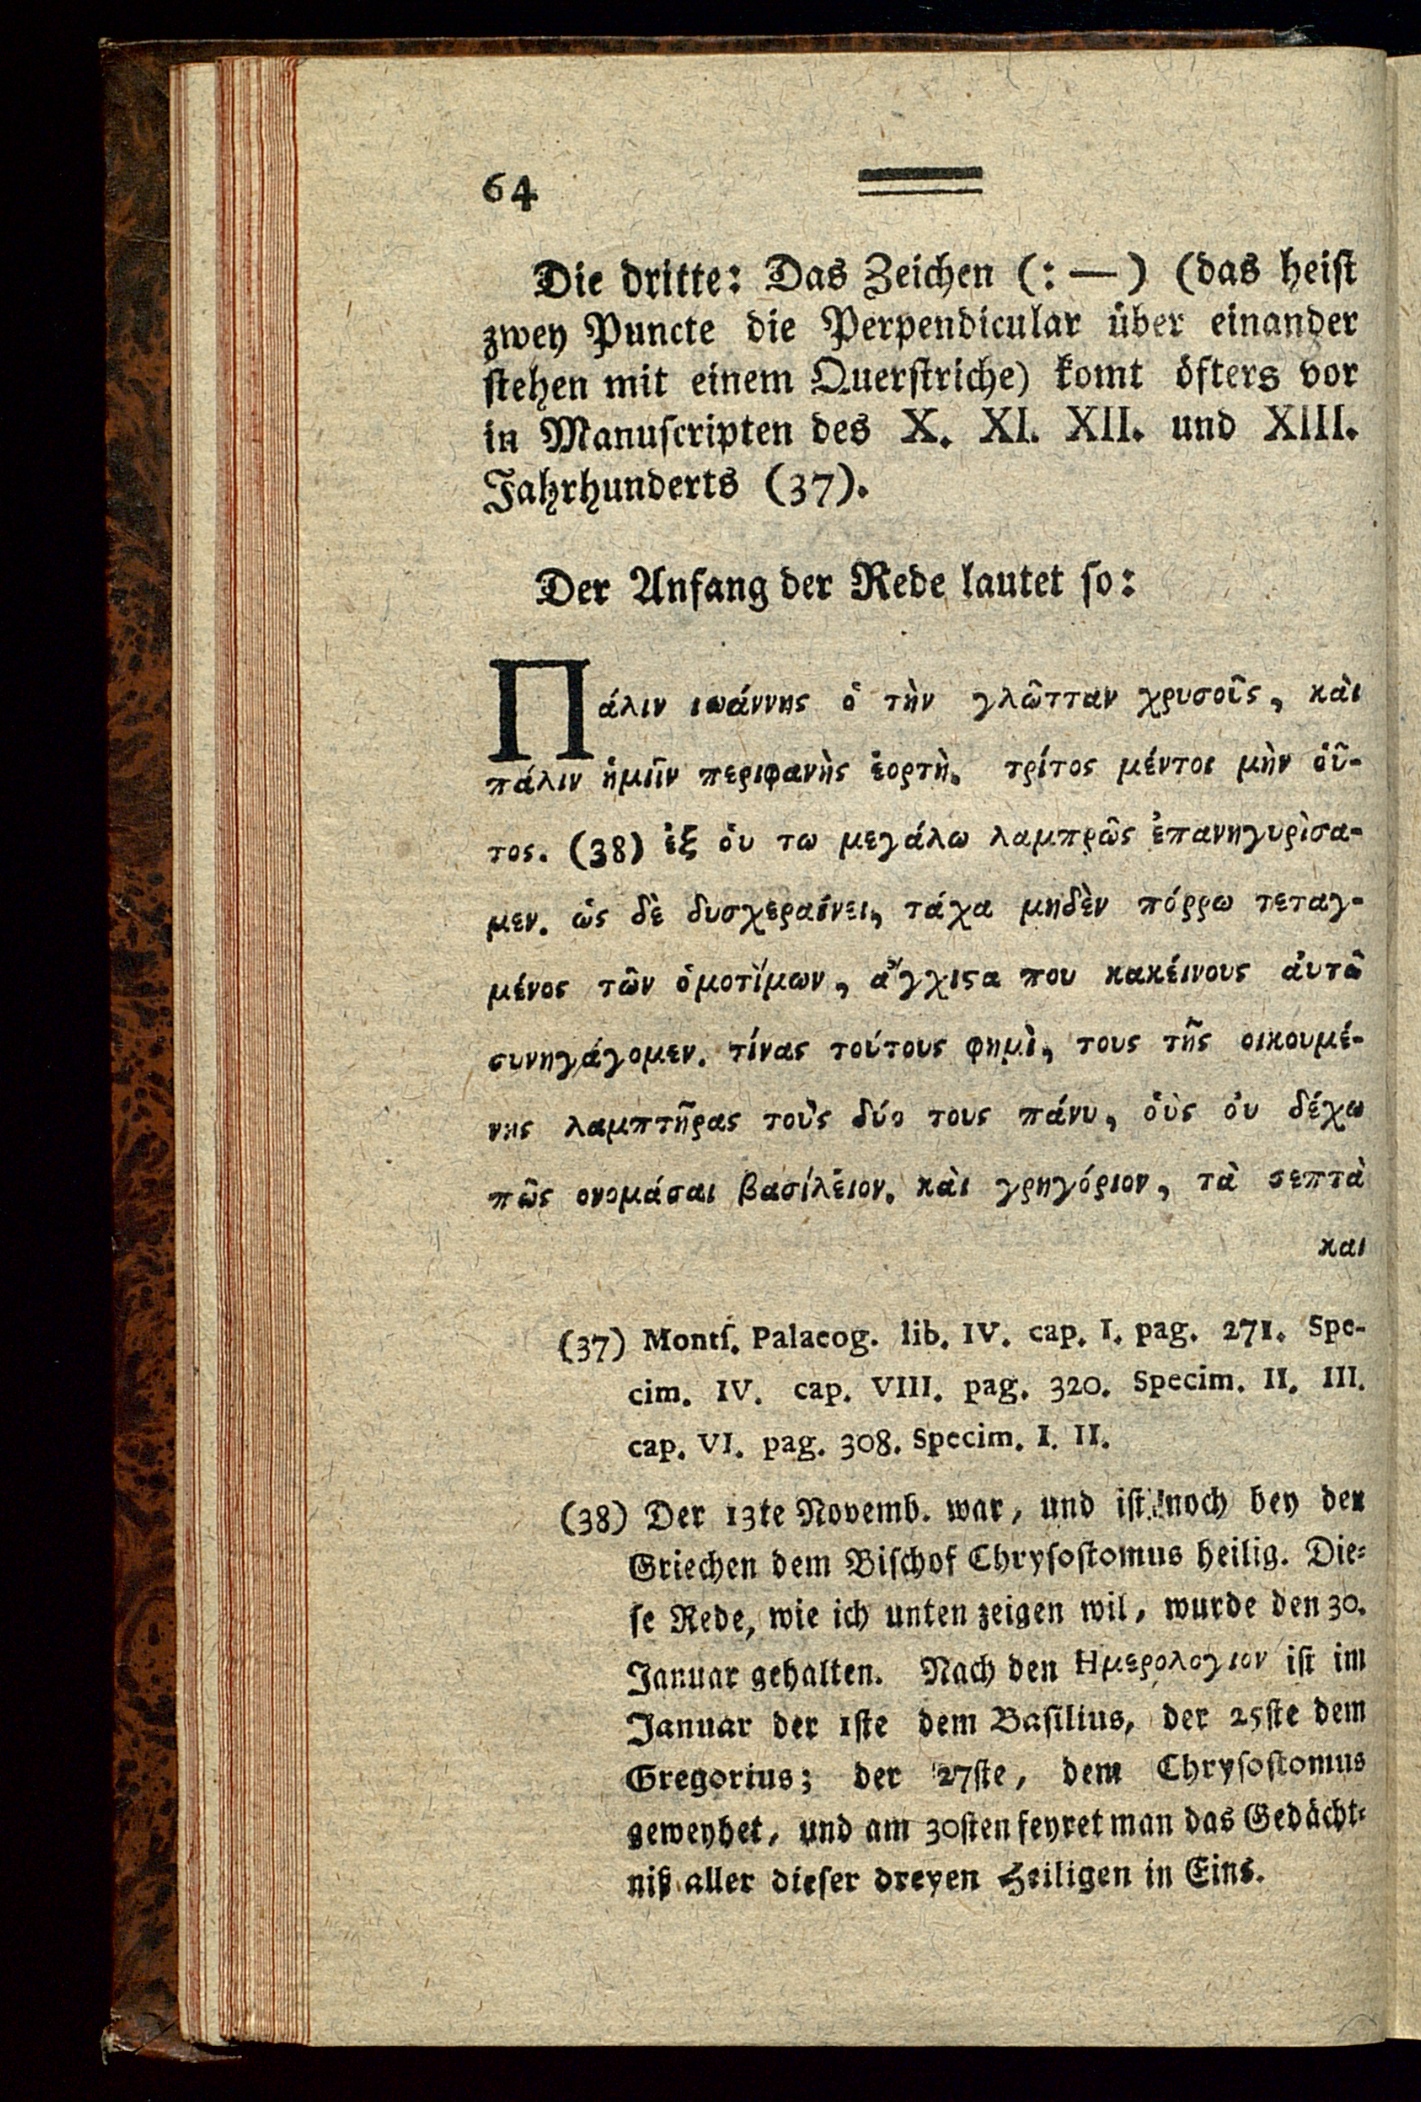 64
Die dritte: Das Zeichen (: —) (das heist
zwey Puncte die Perpendicular über einander
stehen mit einem Querstriche) komt öfters vor
in Manuscripten des X. XI. XII. und XIII.
Jahrhunderts (37).
Der Anfang der Rede lautet so:
Πάλιν ιωάννης ὁ τὴν γλῶτταν χρυσοῦς, κὰι
πάλιν ἡμῖιν περιφανὴς ἑορτὴ. τρίτος μέντοι μὴν ὁῦ-
τος. (38) ἐξ ὁυ τω μεγάλω λαμπρῶς ἐπανηγυρὶσα-
μεν. ὡς δὲ δυσχεραίνει, τάχα μηδὲν πόρρω τεταγ-
μένος τῶν ὁμοτὶμων, ἄγχιϛα που κακέινους ἀυτῶ
συνηγάγομεν. τίνας τούτους φημὶ, τους τῆς οικουμέ-
νης λαμπτῆρας τοὺς δύο τους πάνυ, ὁὺς ὀυ δέχω
πῶς ονομάσαι βασίλἑιον. κὰι γρηγόριον, τὰ σεπτὰ
και
(37) Montf. Palaeog. lib. IV. cap. I. pag. 271. Spe-
cim. IV. cap. VIII. pag. 320. Specim. II. III.
cap. VI. pag. 308. Specim. I. II.
(38) Der 13te Novemb. war, und ist noch bey den
Griechen dem Bischof Chrysostomus heilig. Die-
se Rede, wie ich unten zeigen wil, wurde den 30.
Januar gehalten. Nach den Ημερολογιον ist im
Januar der 1ste dem Basilius, der 25ste dem
Gregorius; der 27ste, dem Chrysostomus
geweyhet, und am 30sten feyret man das Gedächt-
niß aller dieser dreyen Heiligen in Eins.